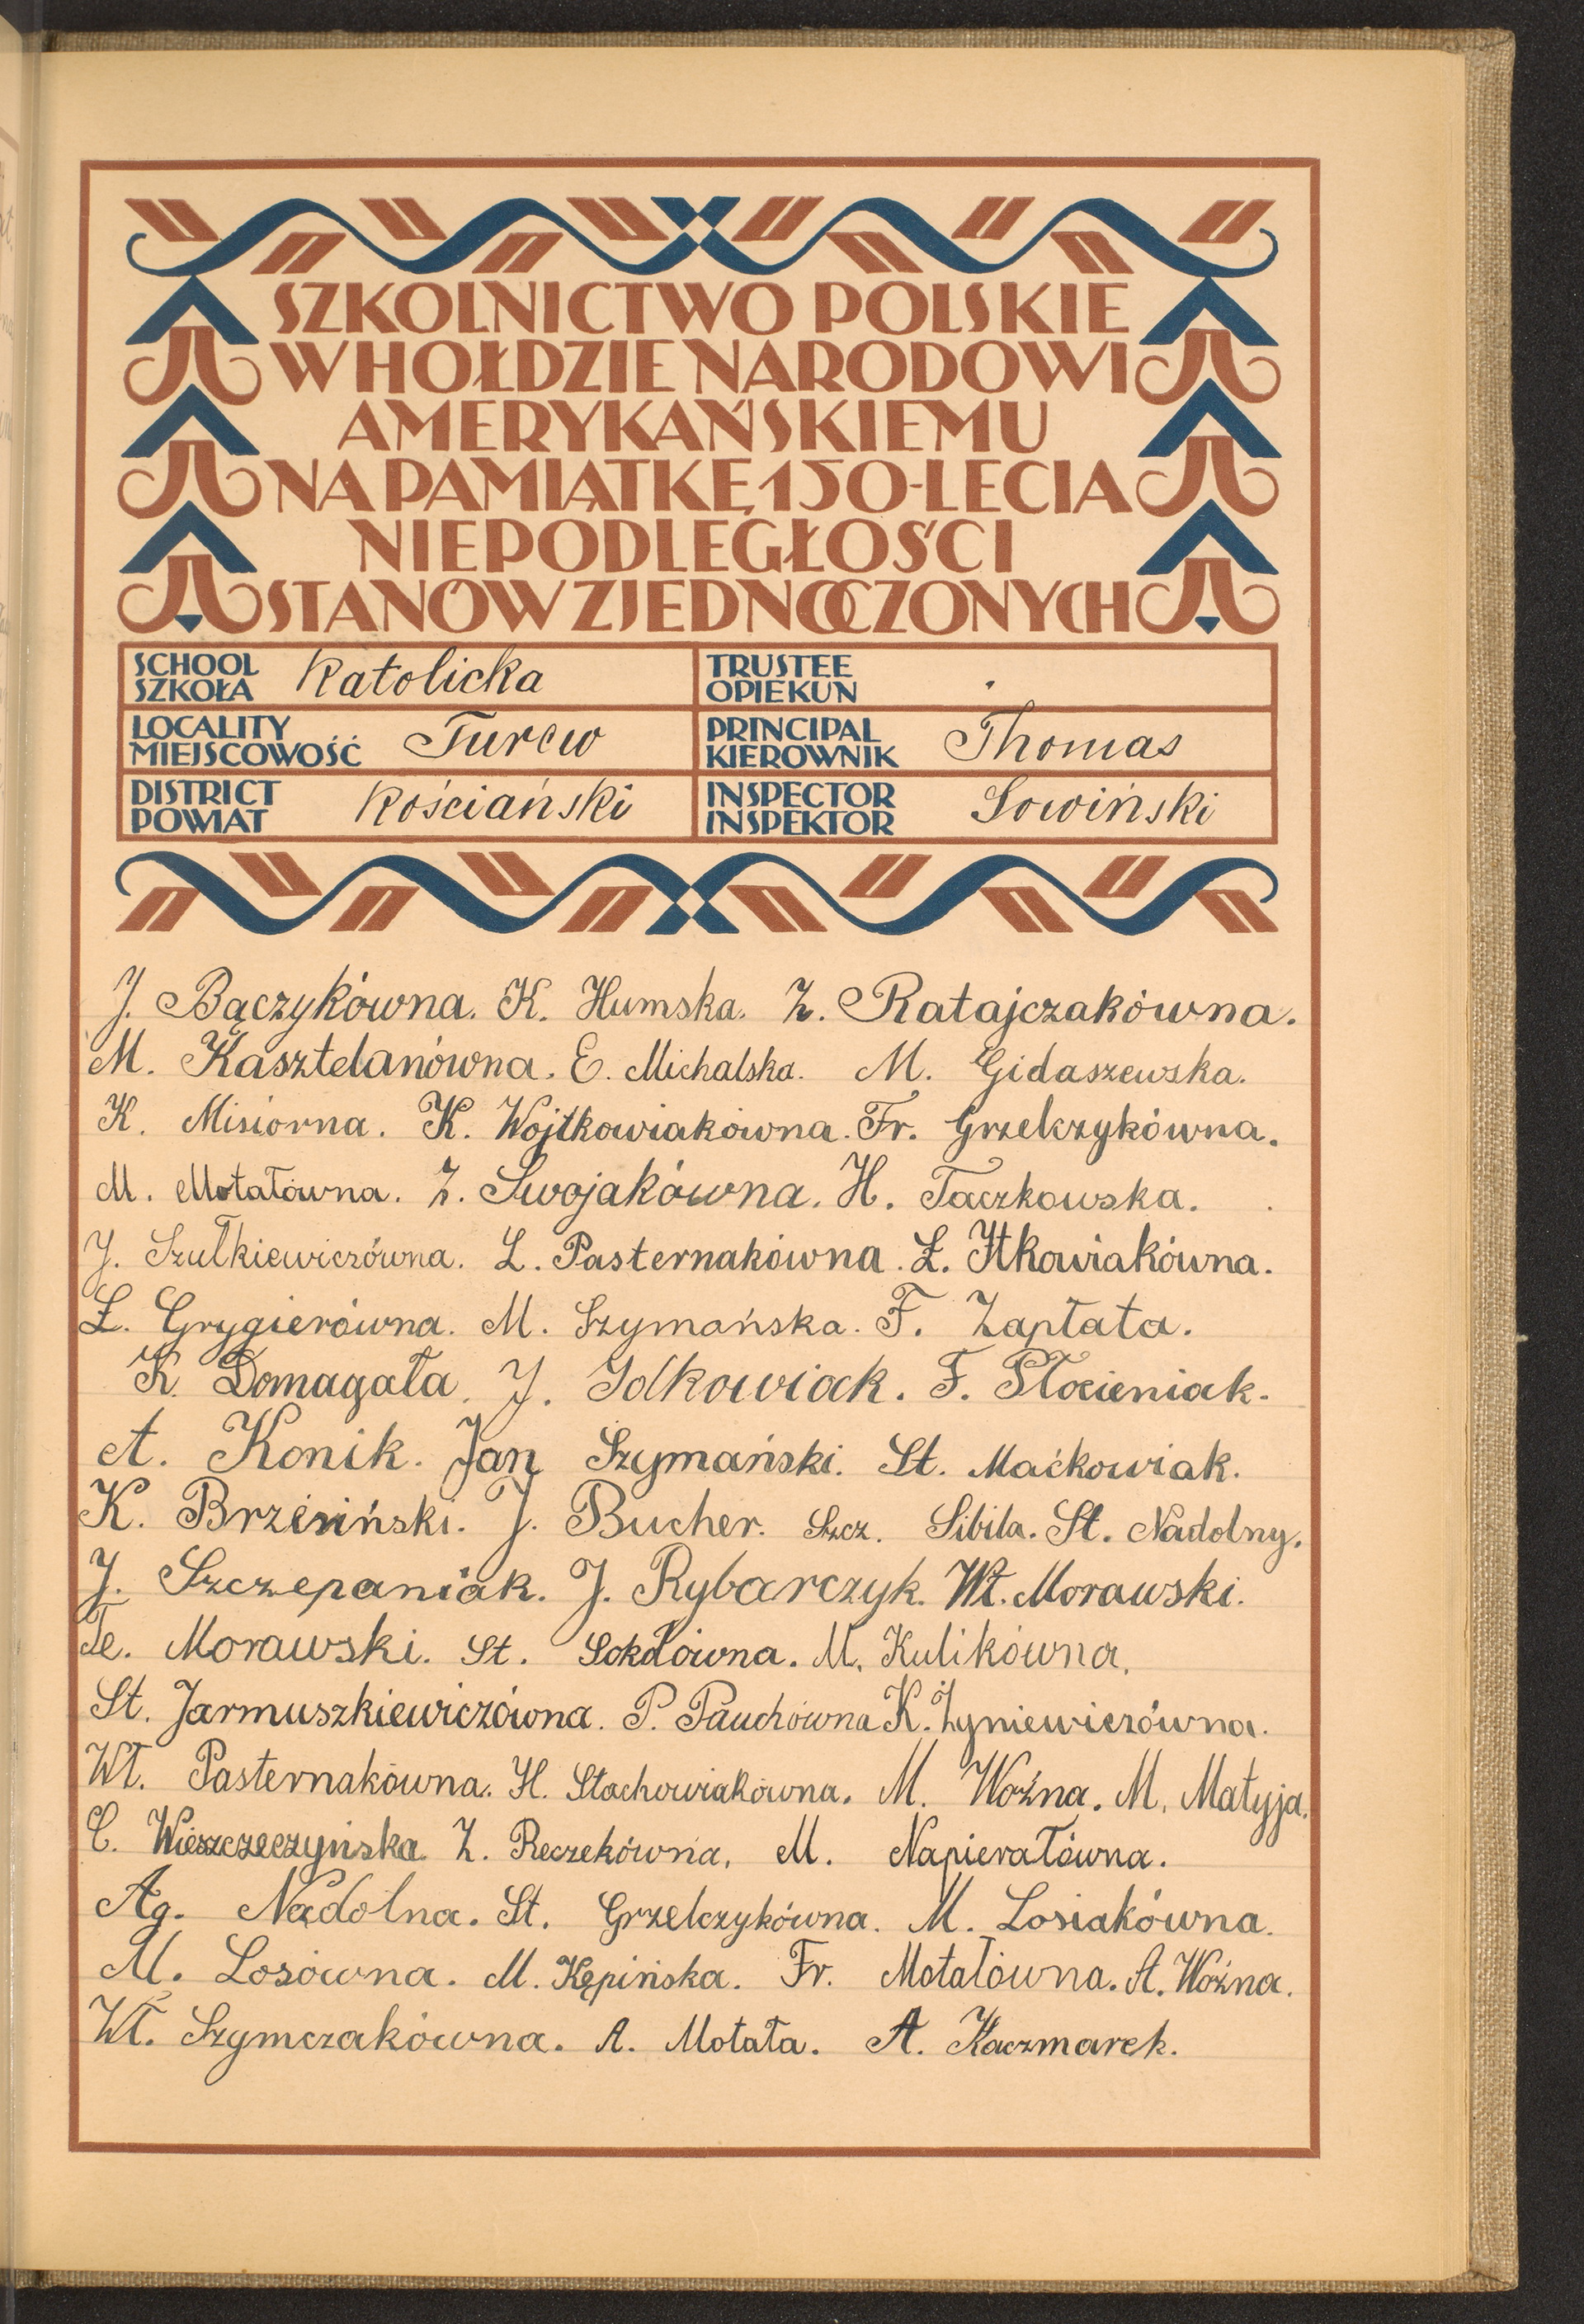 SZKOLNICTWO POLSKIE
W HOŁDZIE NARODOWI
AMERYKAŃSKIEMU
NA PAMIĄTKĘ 150-LECIA
NIEPODLEGŁOŚCI
STANÓW ZJEDNOCZONYCH
SCHOOL
SZKOŁA Katolicka
TRUSTEE
OPIEKUN
LOCALITY
MIEJSCOWOŚĆ Turew
PRINCIPAL
KIEROWNIK Thomas
DISTRICT
POWIAT Kościański
INSPECTOR
INSPEKTOR Sowiński
J. Bączykówna. K. Humska. Z. Ratajczakówna.
M. Kasztelanówna. E. Michalska. M. Gidaszewska.
K. Misiorna. K. Wojtkowiakówna. Fr. Grzelczykówna.
M. Motałówna. Z. Swojakówna. H. Taczkowska.
J. Szułkiewiczówna. L. Pasternakówna. Ł. Itkowiakówna.
Ł. Grygierówna. M. Szymańska. F. Zapłata.
K. Domagała. J. Idkowiak. F. Płocieniak.
A. Konik. Jan Szymański. St. Maćkowiak.
K. Brzeziński. J. Bucher. Szcz. Sibila. St. Nadolny.
J. Szczepaniak. J. Rybarczyk. Wł. Morawski.
Te. Morawski. St. Sokołówna. M. Kulikówna.
St. Jarmuszkiewiczówna. P. Pauchówna K. Żyniewiczówna.
Wł. Pasternakówna. H. Stachowiakówna. M. Woźna. M. Matyja.
C. Wieszczeczyńska. Z. Reczekówna. M. Napierałówna.
Ag. Nadolna. St. Grzelczykówna. M. Losiakówna.
M. Losówna. M. Kępińska. Fr. Motałówna. A. Woźna.
Wł. Szymczakówna. A. Motała. A. Kaczmarek.